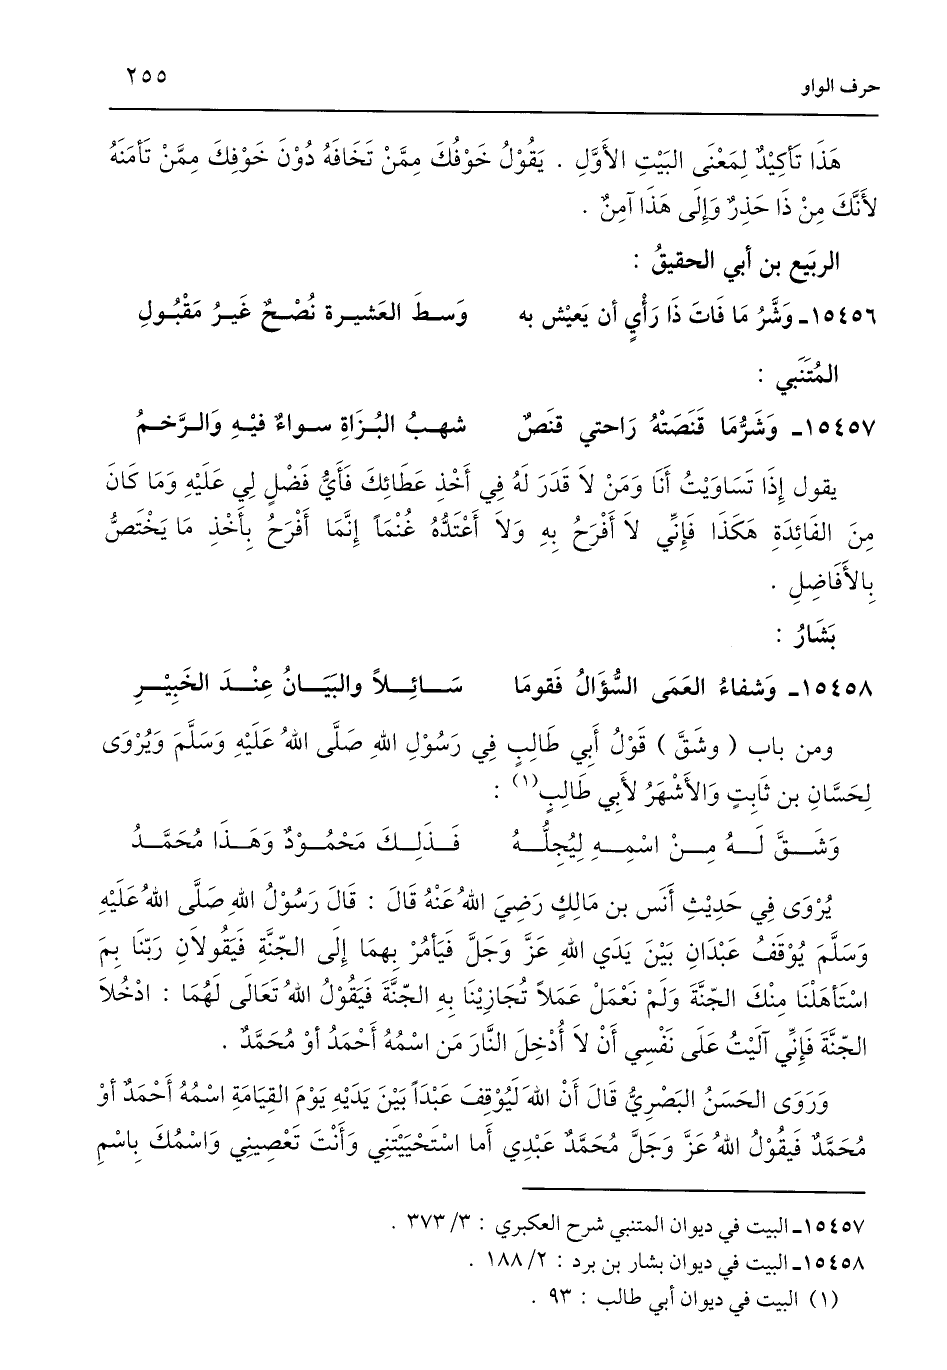 حرف الواو ٢٥٥
هَذَا تَأكِيْدٌ لِمَعْنَى البَيْتِ الأَوَّلِ . يَقُوْلُ خَوْفُكَ مِمَّنْ تَخَافَهُ دُوْنَ خَوْفِكَ مِمَّنْ تَأمَنَهُ
لأَنَّكَ مِنْ ذَا حَذِرٌ وَإِلَى هَذَا آمِنٌ .
الربَيع بن أبي الحقيقُ :
١٥٤٥٦ـ وَشَّرُ مَا فَاتَ ذَا رَأْيٍ أن يَعيْش به وَسـطَ العَشيـرة نُصْـحٌ غَيـرُ مَقْبُـولِ
المُتَنَبي :
١٥٤٥٧ـ وَشَرُّمَا قَنَصَتْهُ رَاحتي قنَصٌ شهبُ البُـزَاةِ سـواءٌ فيْـهِ وَالـرَّخـمُ
يقول إِذَا تَسَاوَيْتُ أَنَا وَمَنْ لاَ قَدَرَ لَهُ فِي أَخْذِ عَطَائِكَ فَأَيُّ فَضْلٍ لِي عَلَيْهِ وَمَا كَانَ
مِنَ الفَائِدَةِ هَكَذَا فَإِنِّي لاَ أَفْرَحُ بِهِ وَلاَ أَعْتَدُّهُ غُنْمَاً إِنَّمَا أَفْرَحُ بِأَخْذِ مَا يَخْتَصُّ
بِالأَفَاضِلِ .
بَشَارُ :
١٥٤٥٨ـ وَشفاءُ العَمَى السُّؤَالُ فَقومَا سَـائِـلاً والبَيَـانُ عِنْـدَ الخَبِيْـرِ
ومن باب ( وشَقَّ ) قَوْلُ أَبِي طَالِبٍ فِي رَسُوْلِ اللهِ صَلَّى اللهُ عَلَيْهِ وَسَلَّمَ وَيُرْوَى
لِحَسَّانِ بن ثَابِتٍ وَالأَشْهَرُ لأَبِي طَالِبٍ(١) :
وَشَـقَّ لَـهُ مِـنْ اسْمِـهِ لِيُجِلَّـهُ فَـذَلِـكَ مَحْمُـوْدٌ وَهَـذَا مُحَمَّـدُ
يُرْوَى فِي حَدِيْثِ أَنَس بن مَالِكٍ رَضِيَ اللهُ عَنْهُ قَالَ : قَالَ رَسُوْلُ اللهِ صَلَّى اللهُ عَلَيْهِ
وَسَلَّمَ يُوْقَفُ عَبْدَانِ بَيْنَ يَدَي اللهِ عَزَّ وَجَلَّ فَيَأمُرْ بِهِمَا إِلَى الجنَّةِ فَيَقُولاَنِ رَبّنَا بِمَ
اسْتَأهَلْنَا مِنْكَ الجنَّةَ وَلَمْ نَعْمَلْ عَمَلاً تُجَازِيْنَا بِهِ الجنَّةَ فَيَقُوْلُ اللهُ تَعَالَى لَهُمَا : ادْخُلاَ
الجنَّةَ فَإِنِّي آلَيْتُ عَلَى نَفْسِي أَنْ لاَ أُدْخِلَ النَّارَ مَن اسْمُهُ أَحْمَدُ أوْ مُحَمَّدٌ .
وَرَوَى الحَسَنُ البَصْرِيُّ قَالَ أَنْ اللهَ لَيُوْقِفَ عَبْدَاً بَيْنَ يَدَيْهِ يَوْمَ القِيَامَةِ اسْمُهُ أَحْمَدٌ أوْ
مُحَمَّدٌ فَيَقُوْلُ اللهُ عَزَّ وَجَلَّ مُحَمَّدٌ عَبْدِي أَما اسْتَحْيَيْتَنِي وَأَنْتَ تَعْصِيني وَاسْمُكَ بِاسْمِ
١٥٤٥٧ـ البيت في ديوان المتنبي شرح العكبري : ٣/ ٣٧٣ .
١٥٤٥٨ـ البيت في ديوان بشار بن برد : ٢/ ١٨٨ .
(١) البيت في ديوان أبي طالب : ٩٣ .